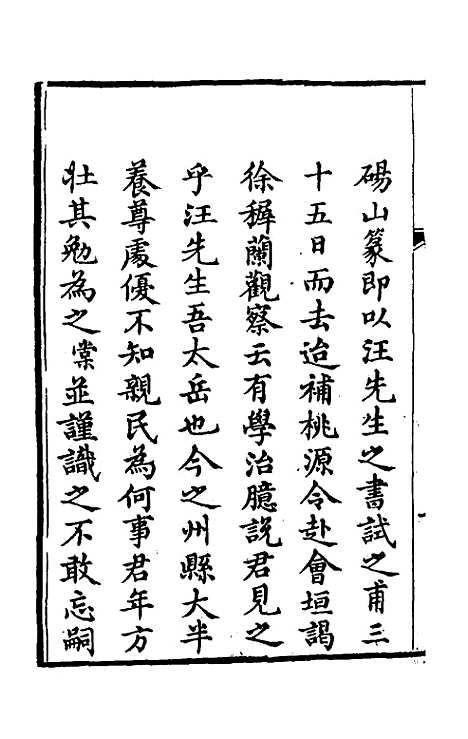 碭山篆即以汪先生之書試之甫三
十五日而去迨補桃源令赴會垣謁
徐穉蘭觀察云有學治臆説君見之
乎汪先生吾太岳也今之州縣大半
養尊處優不知親民為何事君年方
壯其勉為之棠並謹識之不敢忘嗣